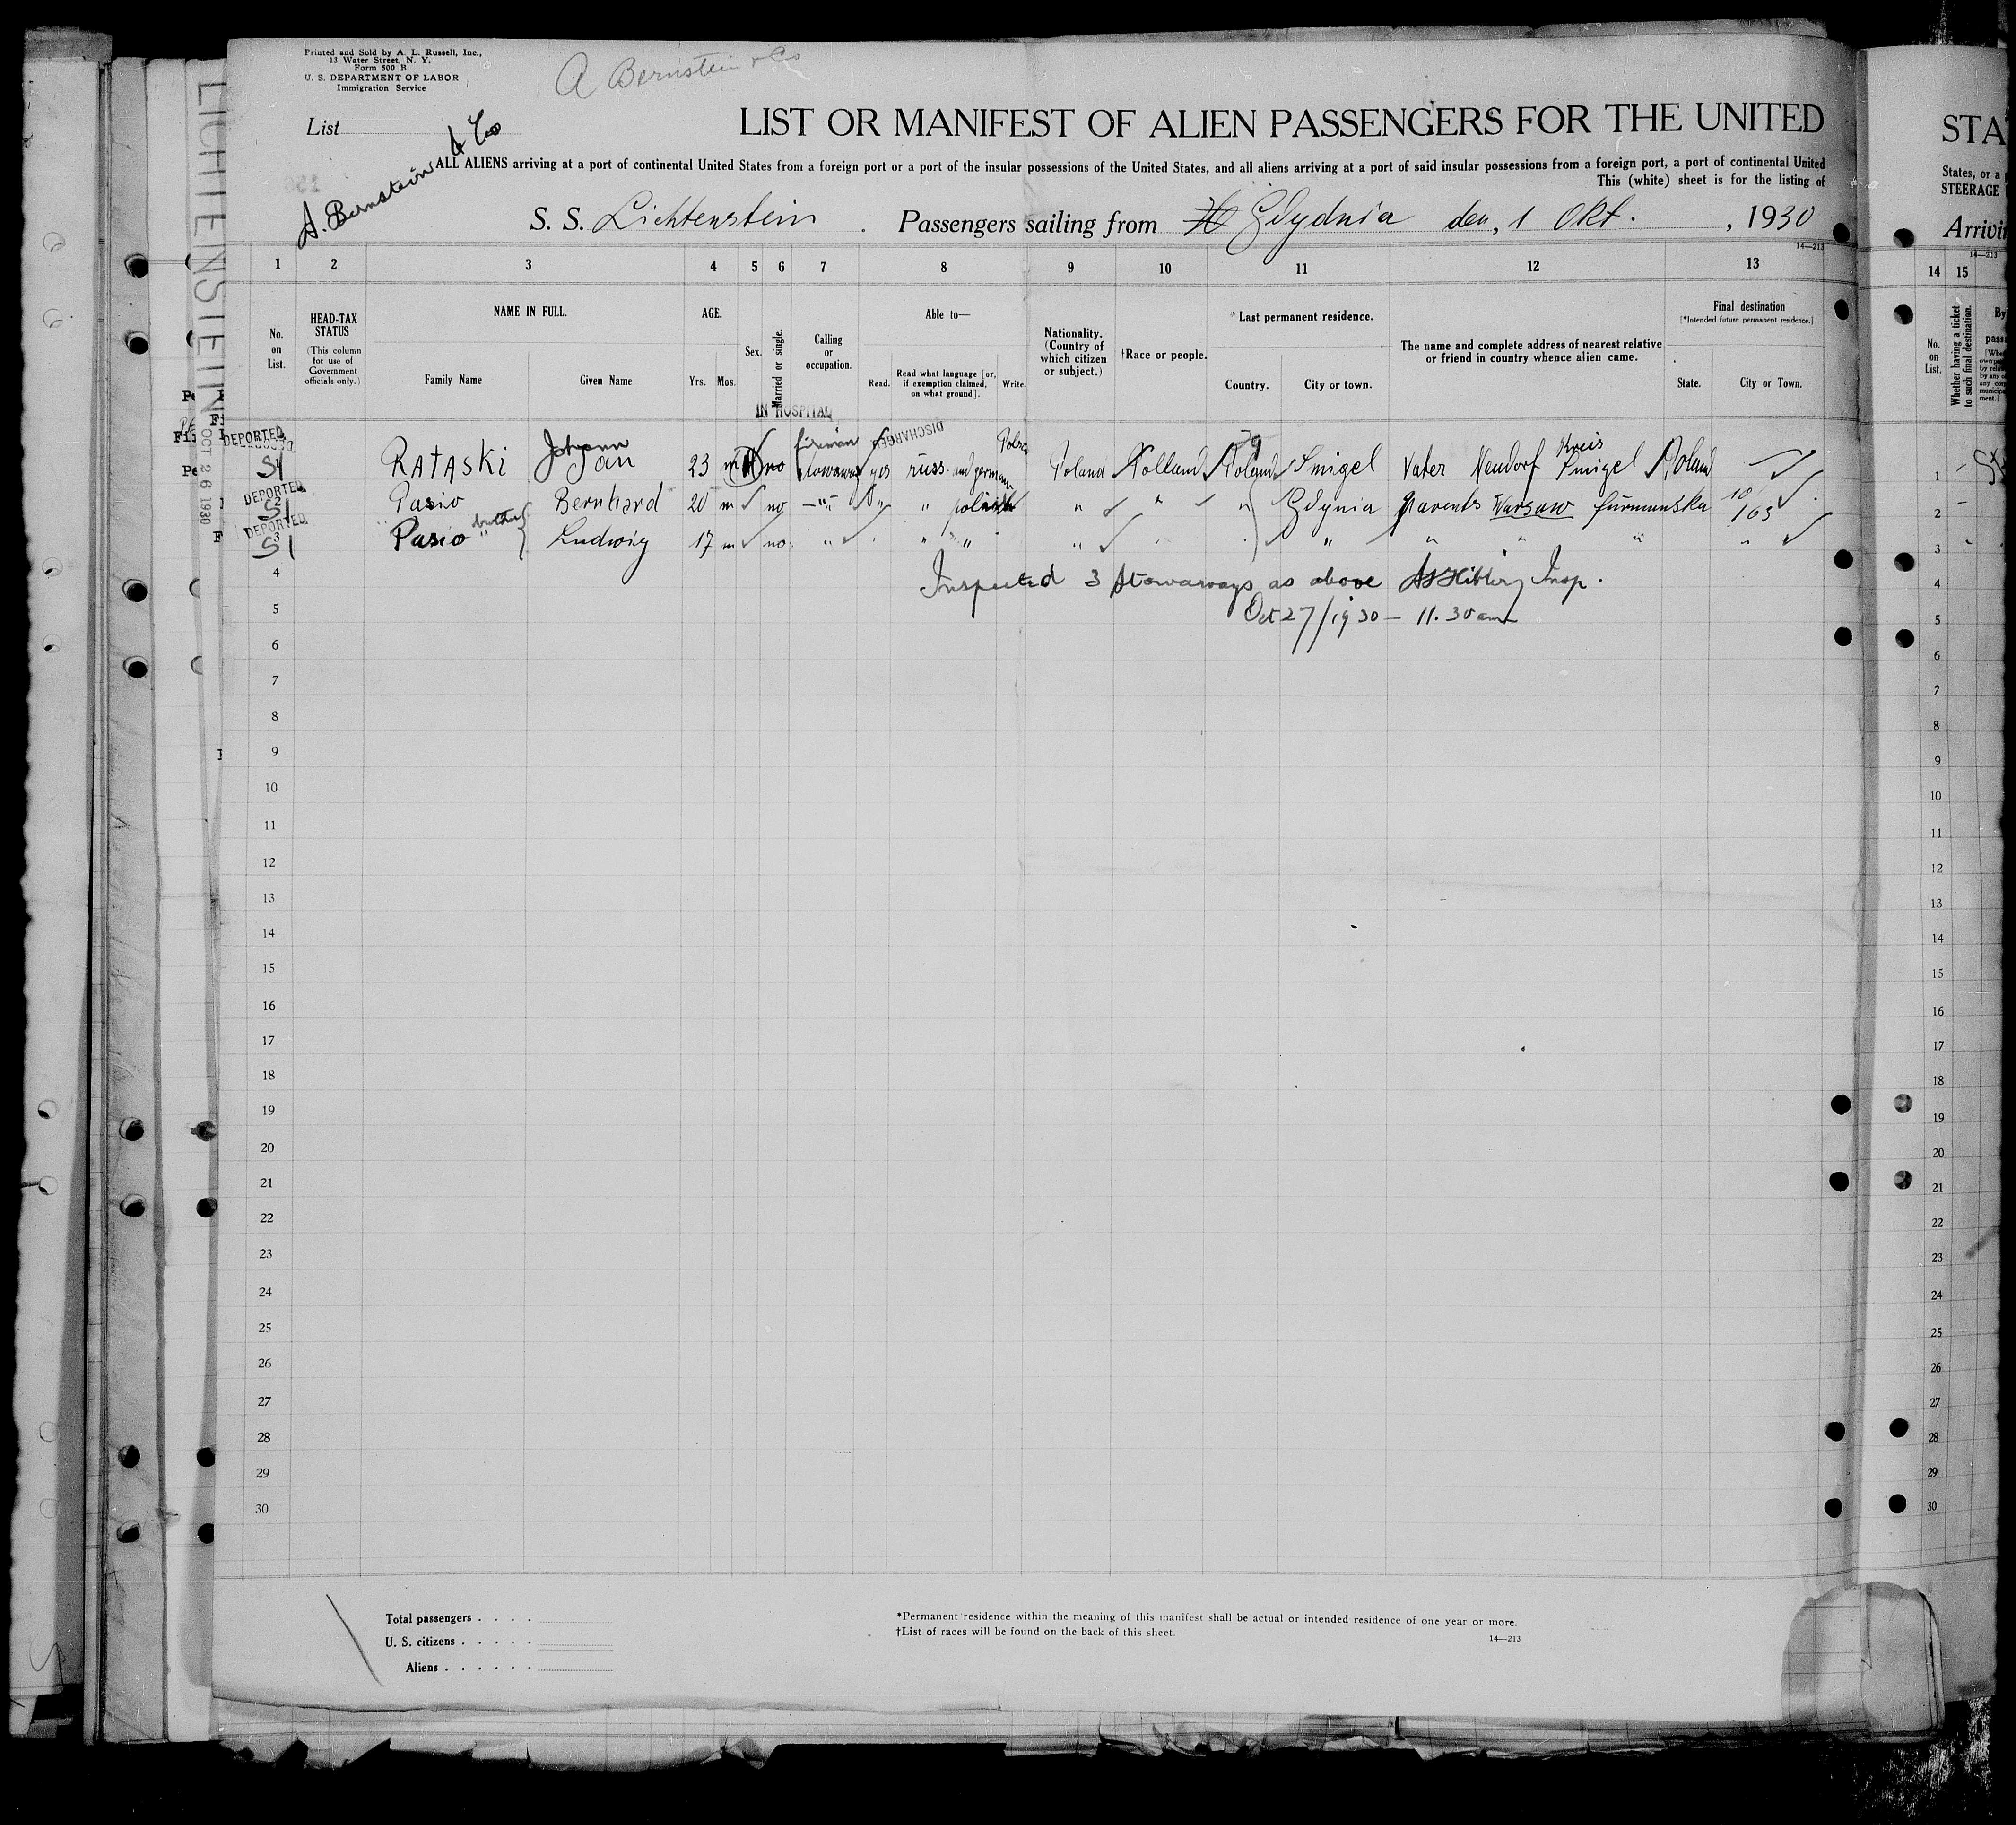 Printed and Sold by A. L. Russell, Inc.,
13 Water Street, N. Y.
Form 500 B
U. S. DEPARTMENT OF LABOR
Immigration Service
A Bernstein & Co
List
A. Bernstein & Co
LIST OR MANIFEST OF ALIEN PASSENGERS FOR THE UNITED
ALL ALIENS arriving at a port of continental United States from a foreign port or a port of the insular possessions of the United States, and all aliens arriving at a port of said insular possessions from a foreign port, a port of continental United
This (white) sheet is for the listing of
S. S. Lichtenstein Passengers sailing from Gdydnia den, 1 Okt. , 1930
14—213
1 2 3 4 5 6 7 8 9 10 11 12 13
No. on List.
HEAD-TAX STATUS
(This column for use of Government officials only.)
NAME IN FULL.
Family Name Given Name
AGE.
Yrs. Mos.
Sex.
Married or single.
Calling or occupation.
Able to—
Read. Read what language [or, if exemption claimed, on what ground]. Write.
Nationality. (Country of which citizen or subject.)
†Race or people.
*Last permanent residence.
Country. City or town.
The name and complete address of nearest relative or friend in country whence alien came.
Final destination
[*Intended future permanent residence.]
State. City or Town.
IN HOSPITAL
DISCHARGED
LICHTENSTEIN OCT 26 1930
DEPORTED SI RATASKI Johann Jan 23 m no fireman stowaway yes russ. and german Poland Poland Smigel Vater Neudorf Kreis Smigel Poland
DEPORTED 2 SI Pasio Bernhard 20 m no " " " polnish " " " Gdynia parents Warsaw furmanska 10/163
DEPORTED 3 SI Pasio brother Ludwig 17 m no " " " " " " " "
4 Inspected 3 Stowaways as above Insp.
5 Oct 27/1930 — 11.30 am
6
7
8
9
10
11
12
13
14
15
16
17
18
19
20
21
22
23
24
25
26
27
28
29
30
Total passengers . . . .
U. S. citizens . . . . .
Aliens . . . . . .
*Permanent residence within the meaning of this manifest shall be actual or intended residence of one year or more.
†List of races will be found on the back of this sheet.
14—213
STA
States, or a
STEERAGE
14—213
14 15
No. on List.
Whether having a ticket to such final destination.
By
1
2
3
4
5
6
7
8
9
10
11
12
13
14
15
16
17
18
19
20
21
22
23
24
25
26
27
28
29
30